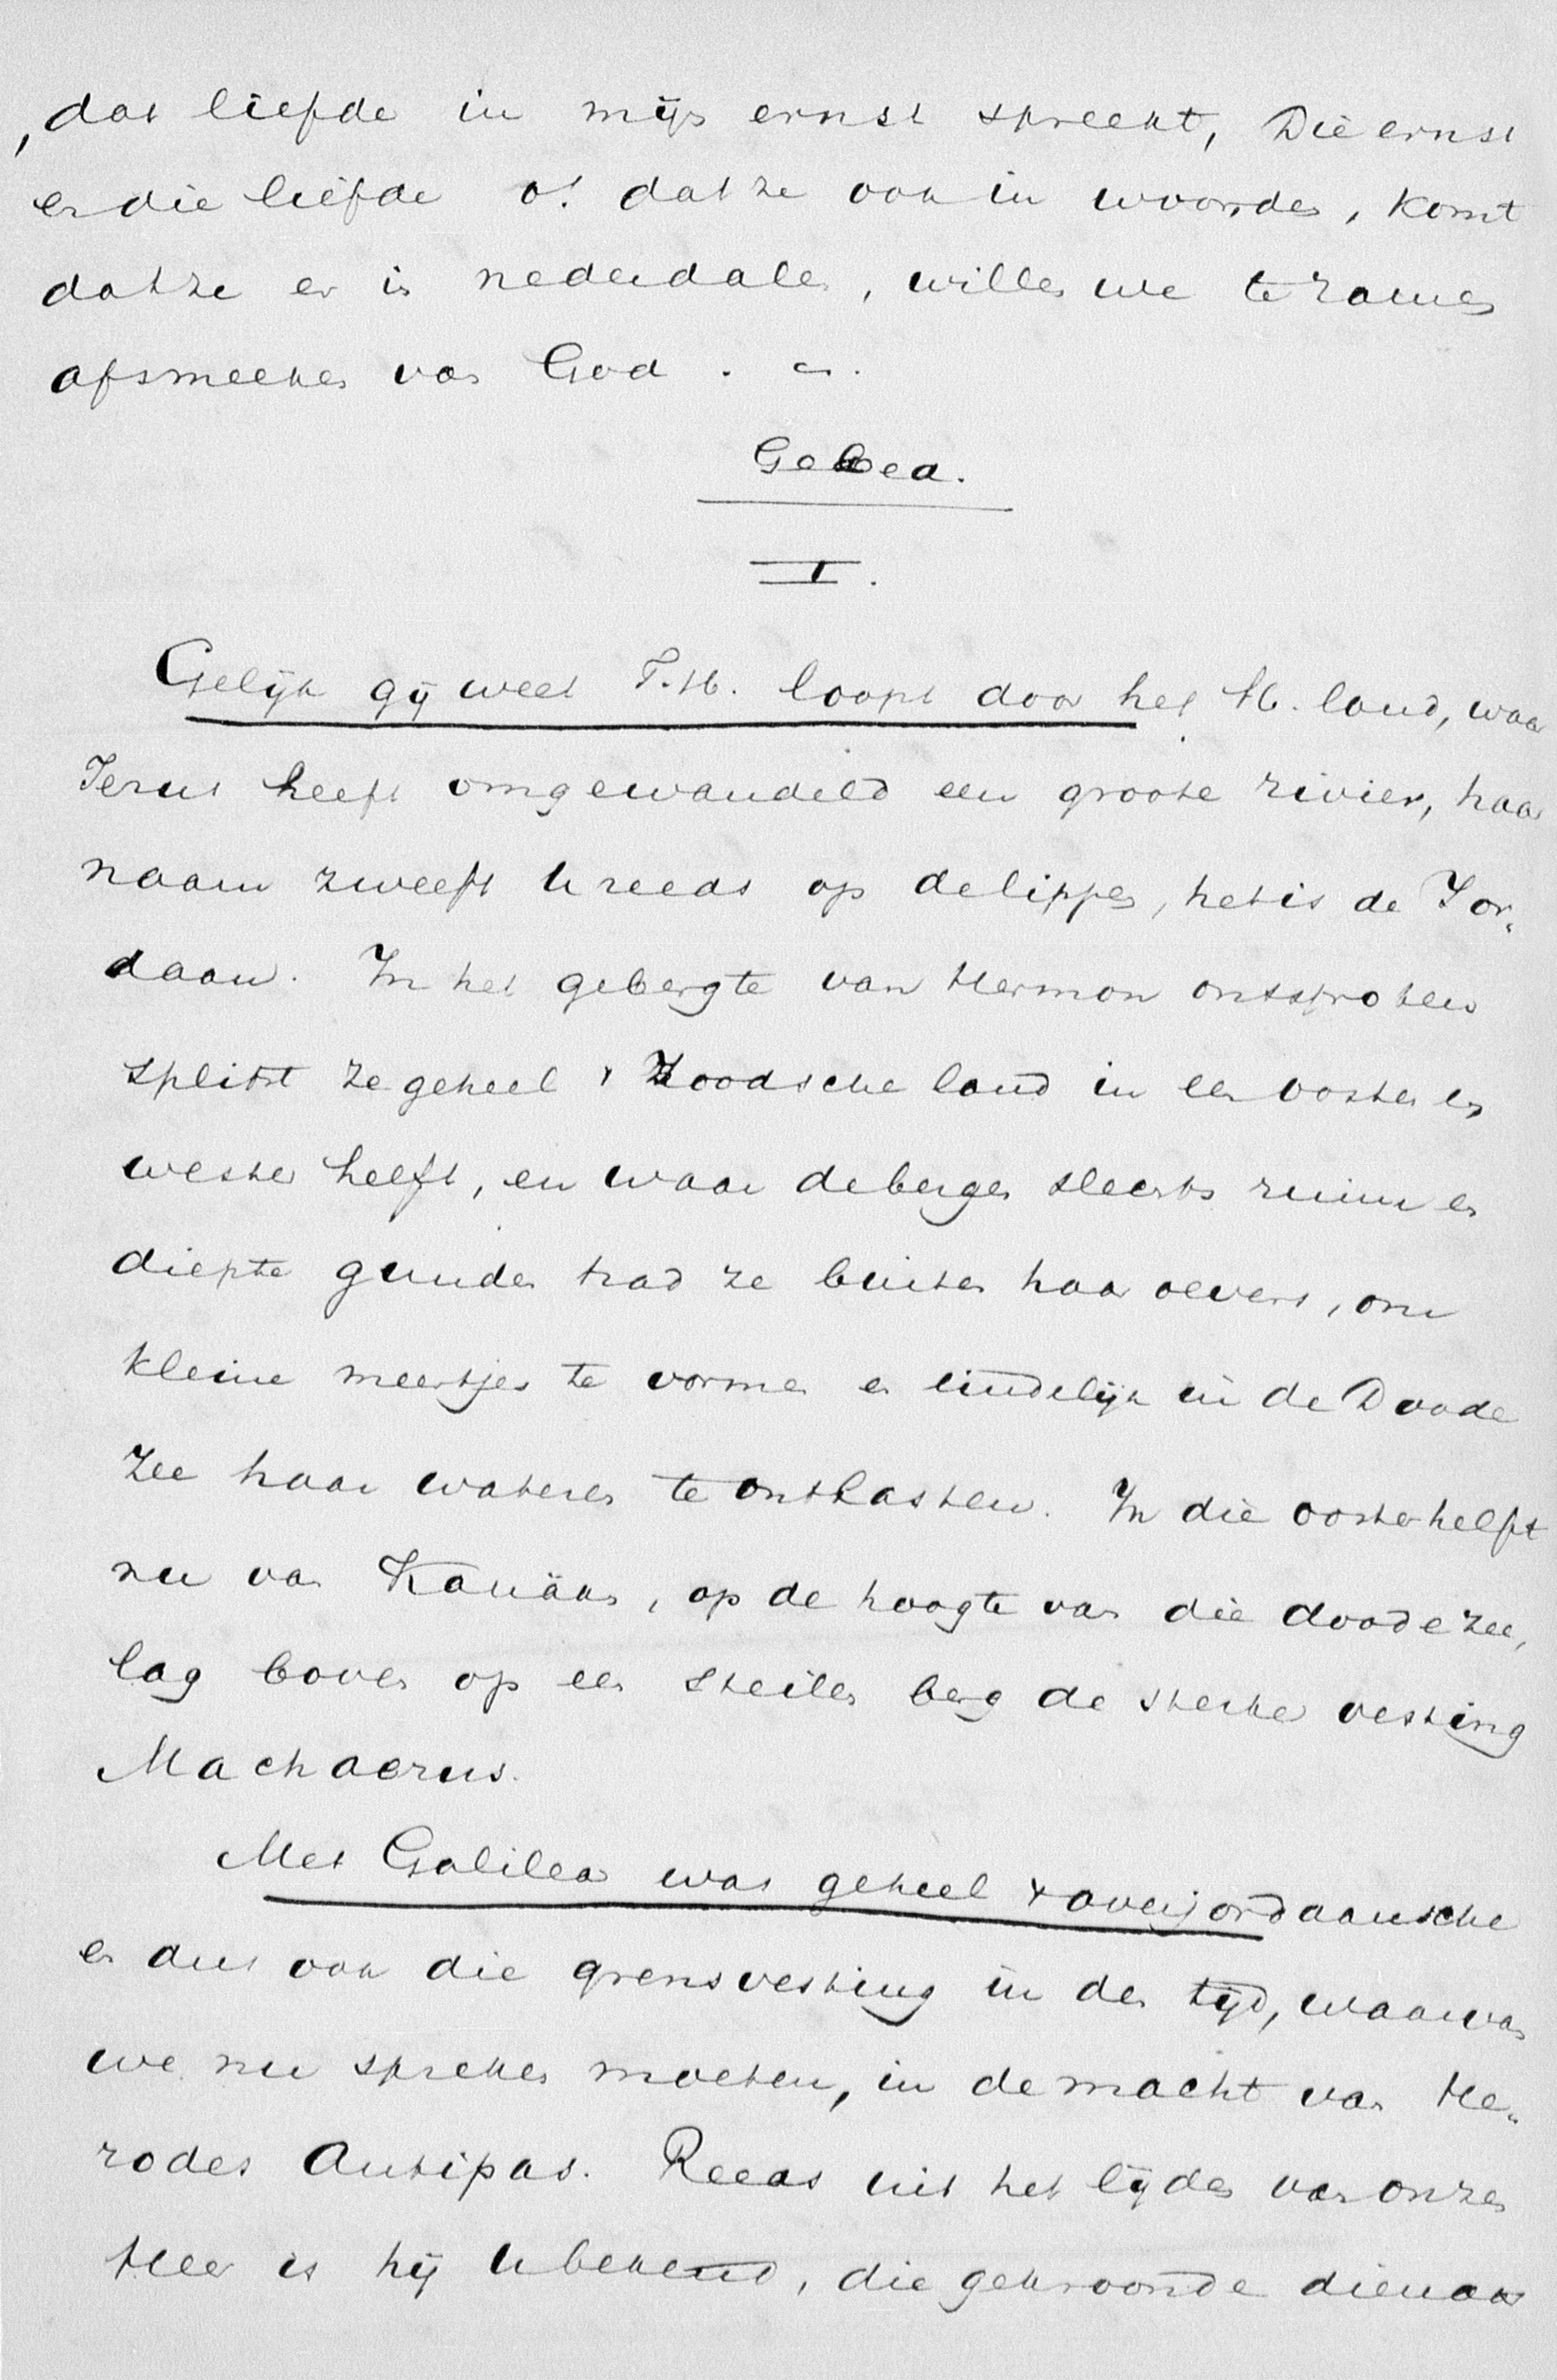 , dat liefde in mijn ernst spreekt, Die ernst
en die liefde o! dat ze ook in woorden, komt
dat ze er in nederdalen, willen we te zamen
afsmeeken van God.
Gebed.
I.
Gelijk gij weet T.H. loopt door het H. land, waar
Jezus heeft omgewandeld een groote rivier, haar
naam zweeft U reeds op de lippen, het is de Jor„
daan. In het gebergte van Hermon ontsproten
splitst ze geheel 't Joodsche land in een ooster en
wester helft, en waar de bergen slechts ruim en
diepte gunden trad ze buiten haar oevers, om
kleine meertjes te vormen en eindelijk in de Doode
Zee haar wateren te ontlasten. In die oosterhelft
nu van Kanäan, op de hoogte van die doode zee,
lag boven op een steilen berg de sterke vesting
Machaerus.
Met Galilea was geheel 't overjordaansche
en dus ook die grensvesting in den tijd, waarvan
we nu spreken moeten, in de macht van He„
rodes Antipas. Reeds uit het lijden van onzen
Heer is hij U bekend, die gekroonde dienaar